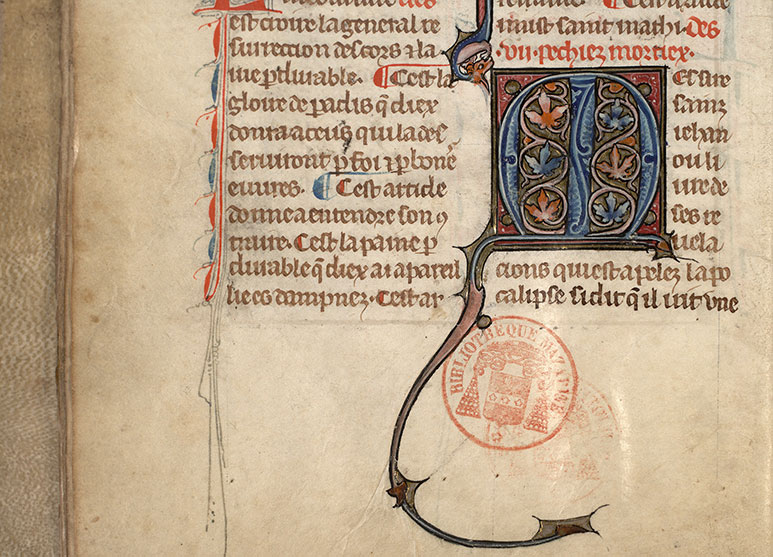 est croire la general re
surrection des cors ⁊ la
uie pdurable. Cest la
gloire de padis q̃ diex
donra a ceus qui la des
seruiront p foi ⁊ p bone
euures. Cest article
donne a entendre son ꝯ
traire. Cest la paine p
durable q̃ diex a i apareil
liees dampnez. Cest ar
mist saint mathi. des
.vii. pechiez mortiex.
Mesire
sainz
iehan
ou li
ure de
ses re
uela
cions qui est apelez lapo
calipse si dit q̃ il uit vne
BIBLIOTHÈQUE MAZARINE